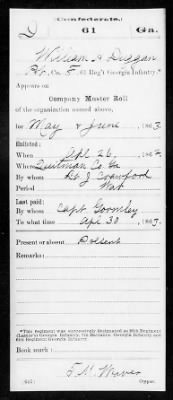 (Confederate.)
D 61 Ga.
William A Duggan
Pvt, Co. 61 Reg't Georgia Infantry.*
Appears on
Company Muster Roll
of the organization named above,
for May & June, 1863.
Enlisted:
When Apl 26, 186
Where Quitman Co Ga
By whom J Crawford
Period War
Last paid:
By whom Capt. Gormley
To what time Apl 30, 1863.
Present or absent Present
Remarks:
*This regiment was successively designated as 26th Regiment
61st Regiment Georgia Infantry.
Book mark:
(642) Copyist.